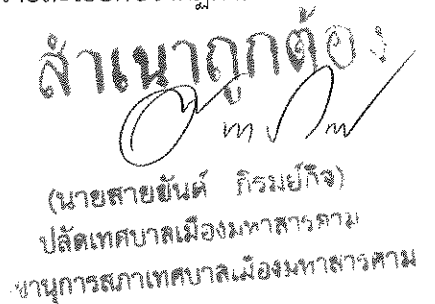 สำเนาถูกต้อง
(นายสายยันต์ ภิรมย์กิจ)
ปลัดเทศบาลเมืองมหาสารคาม
ขานุการสภาเทศบาลเมืองมหาสารคาม